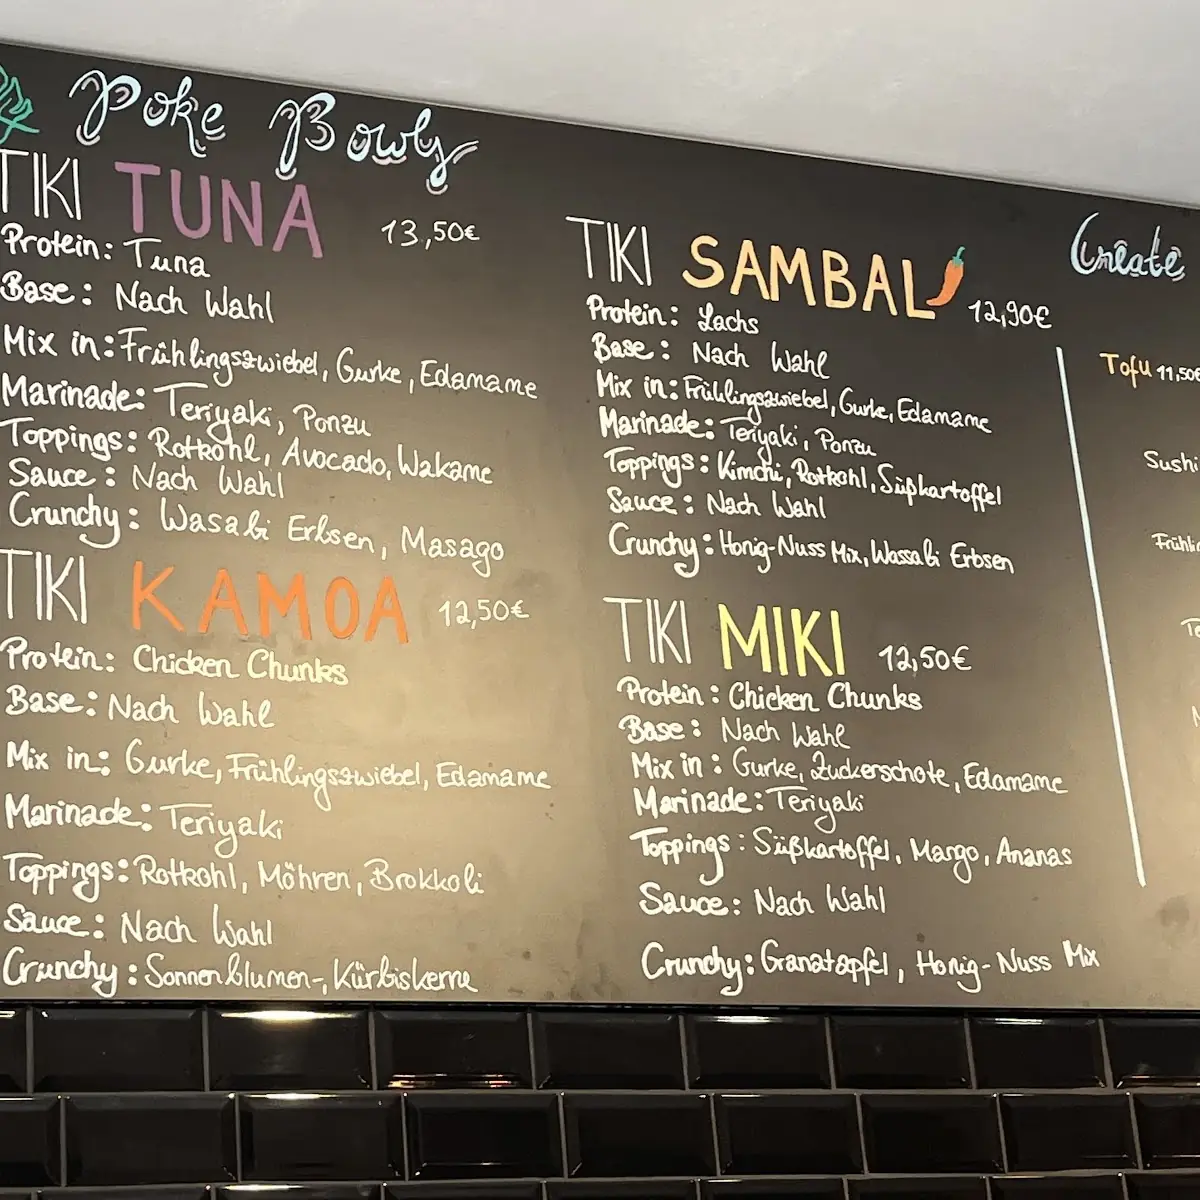 Poke Bowls
TIKI TUNA 13,50€
Protein: Tuna
Base: Nach Wahl
Mix in: Frühlingszwiebel, Gurke, Edamame
Marinade: Teriyaki, Ponzu
Toppings: Rotkohl, Avocado, Wakame
Sauce: Nach Wahl
Crunchy: Wasabi Erbsen, Masago
TIKI KAMOA 12,50€
Protein: Chicken Chunks
Base: Nach Wahl
Mix in: Gurke, Frühlingszwiebel, Edamame
Marinade: Teriyaki
Toppings: Rotkohl, Möhren, Brokkoli
Sauce: Nach Wahl
Crunchy: Sonnenblumen-, Kürbiskerne
TIKI SAMBAL 12,90€
Protein: Lachs
Base: Nach Wahl
Mix in: Frühlingszwiebel, Gurke, Edamame
Marinade: Teriyaki, Ponzu
Toppings: Kimchi, Rotkohl, Süßkartoffel
Sauce: Nach Wahl
Crunchy: Honig-Nuss Mix, Wassabi Erbsen
TIKI MIKI 12,50€
Protein: Chicken Chunks
Base: Nach Wahl
Mix in: Gurke, Zuckerschote, Edamame
Marinade: Teriyaki
Toppings: Süßkartoffel, Mango, Ananas
Sauce: Nach Wahl
Crunchy: Granatapfel, Honig-Nuss Mix
Create
Tofu 11,50€
Sushi